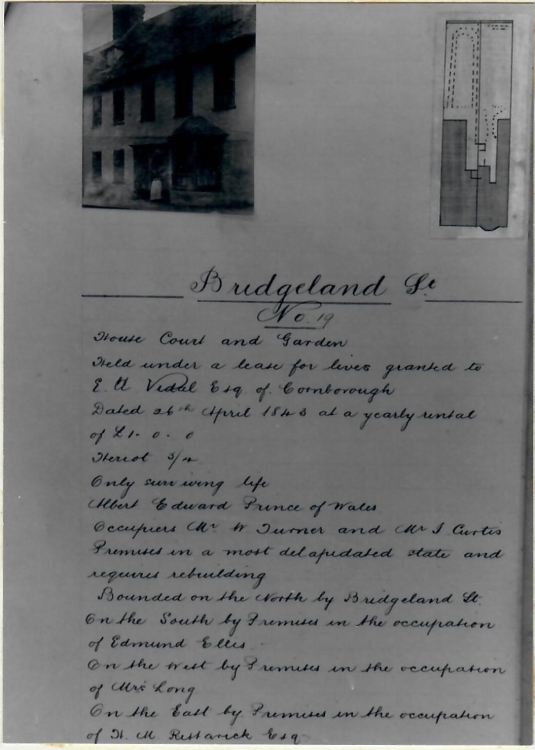 Bridgeland St
No. 19
House Court and Garden
Held under a lease for lives granted to
E. U. Vidal Esq. of Cornborough
Dated 26th April 1843 at a yearly rental
of £1 - 0 - 0
Heriot 3/4
Only surviving life
Albert Edward Prince of Wales
Occupiers Mr W. Turner and Mr J Curtis
Premises in a most delapedated state and
requires rebuilding
Bounded on the North by Bridgeland St.
On the South by Premises in the occupation
of Edmund Ellis
On the West by Premises in the occupation
of Mrs Long
On the East by Premises in the occupation
of H. M. Restarick Esq